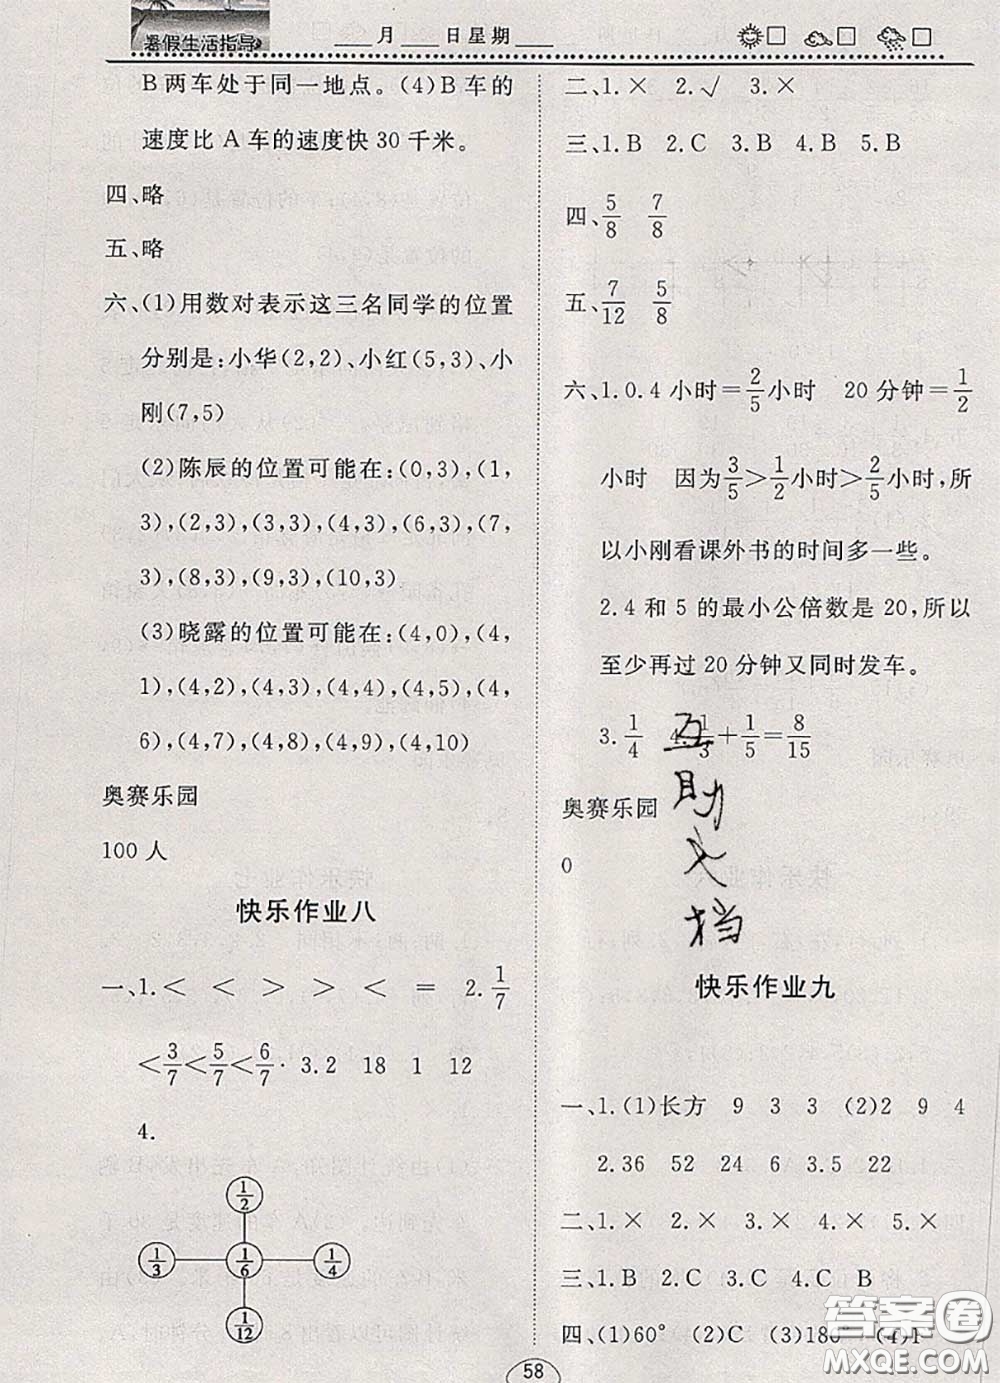 暑假生活指导
____月____日星期____
B两车处于同一地点。(4)B车的
速度比A车的速度快30千米。
四、略
五、略
六、(1)用数对表示这三名同学的位置
分别是:小华(2,2)、小红(5,3)、小
刚(7,5)
(2)陈辰的位置可能在:(0,3),(1,
3),(2,3),(3,3),(4,3),(6,3),(7,
3),(8,3),(9,3),(10,3)
(3)晓露的位置可能在:(4,0),(4,
1),(4,2),(4,3),(4,4),(4,5),(4,
6),(4,7),(4,8),(4,9),(4,10)
奥赛乐园
100人
快乐作业八
一、1.< < > > < = 2.1/7
<3/7<5/7<6/7. 3.2 18 1 12
4.
1/2
1/3 1/6 1/4
1/12
二、1.× 2.√ 3.×
三、1.B 2.C 3.B 4.B 5.B
四、5/8 7/8
五、7/12 5/8
六、1.0.4小时=2/5小时 20分钟=1/2
小时 因为3/5>1/2小时>2/5小时,所
以小刚看课外书的时间多一些。
2.4和5的最小公倍数是20,所以
至少再过20分钟又同时发车。
3.1/4 4.1/3+1/5=8/15
奥赛乐园
0
互助文档
快乐作业九
一、1.(1)长方 9 3 3 (2)2 9 4
2.36 52 24 6 3.5 22
二、1.× 2.× 3.× 4.× 5.×
三、1.B 2.C 3.A 4.C B
四、(1)60° (2)C (3)180° (4)F
58
答案圈
MXQE.COM